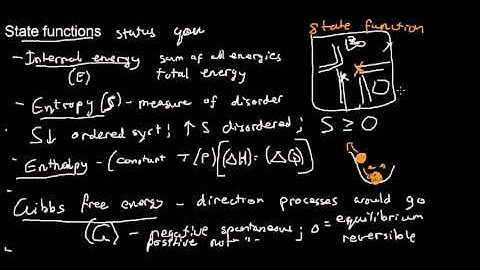 State functions status you
State function
- Internal energy sum of all energies
(E) total energy
- Entropy (S) - measure of disorder
S↓ ordered syst; ↑S disordered; S ≥ 0
- Enthalpy - (constant T/P) (ΔH) = (ΔQ)
- Gibbs free energy - direction processes would go
(G) - negative spontaneous; 0 = equilibrium
positive not -"- reversible